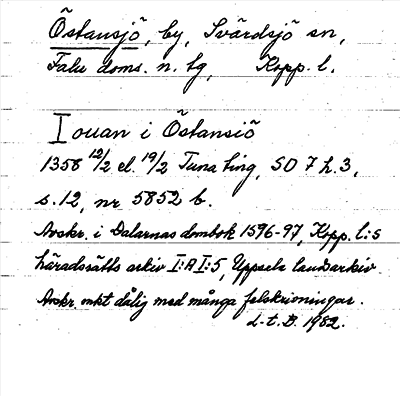 Östansjö, by, Svärdsjö sn,
Falu doms. n. tg, Kopp. l.
Iouan i Östansiö
1358 12/2 el. 19/2 Tuna ting, SD 7 h. 3,
s. 12, nr 5852 b.
Avskr. i Dalarnas dombok 1596-97, Kopp. l:s
häradsrätts arkiv I:A I:5, Uppsala landsarkiv.
Avskr. mkt dålig med många felskrivningar.
L-t. B. 1982.